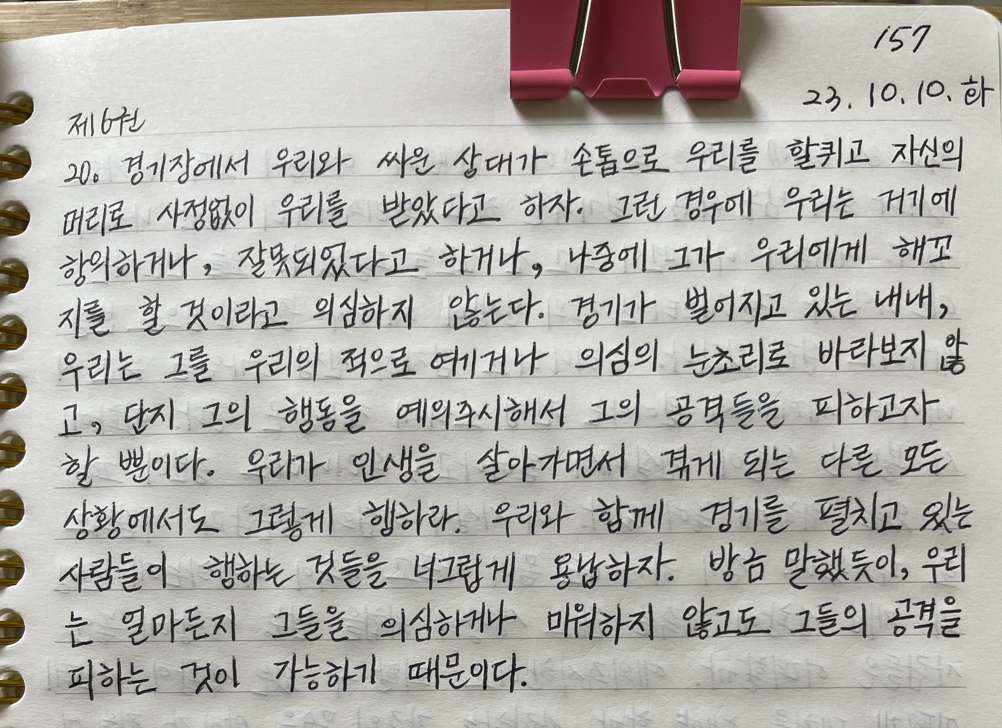 157
23. 10. 10. 화
제6권
20. 경기장에서 우리와 싸운 상대가 손톱으로 우리를 할퀴고 자신의
머리로 사정없이 우리를 받았다고 하자. 그런 경우에 우리는 거기에
항의하거나, 잘못되었다고 하거나, 나중에 그가 우리에게 해꼬
지를 할 것이라고 의심하지 않는다. 경기가 벌어지고 있는 내내,
우리는 그를 우리의 적으로 여기거나 의심의 눈초리로 바라보지 않
고, 단지 그의 행동을 예의주시해서 그의 공격들을 피하고자
할 뿐이다. 우리가 인생을 살아가면서 겪게 되는 다른 모든
상황에서도 그렇게 행하라. 우리와 함께 경기를 펼치고 있는
사람들이 행하는 것들을 너그럽게 용납하자. 방금 말했듯이, 우리
는 얼마든지 그들을 의심하거나 미워하지 않고도 그들의 공격을
피하는 것이 가능하기 때문이다.